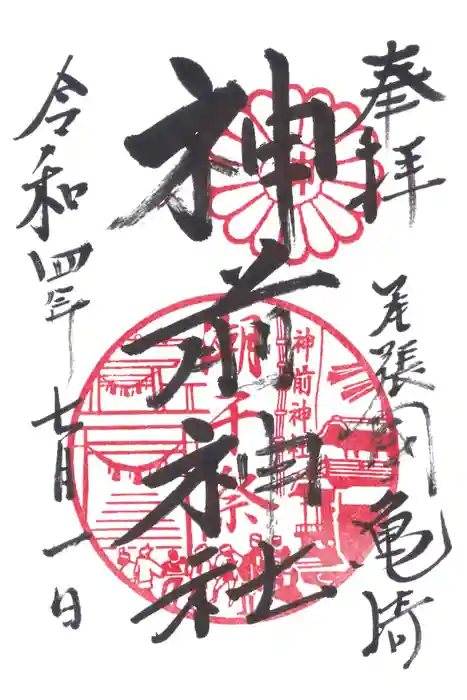 奉拝
尾張國亀崎
神前神社
神前神社
潮干祭
令和四年
七月一日